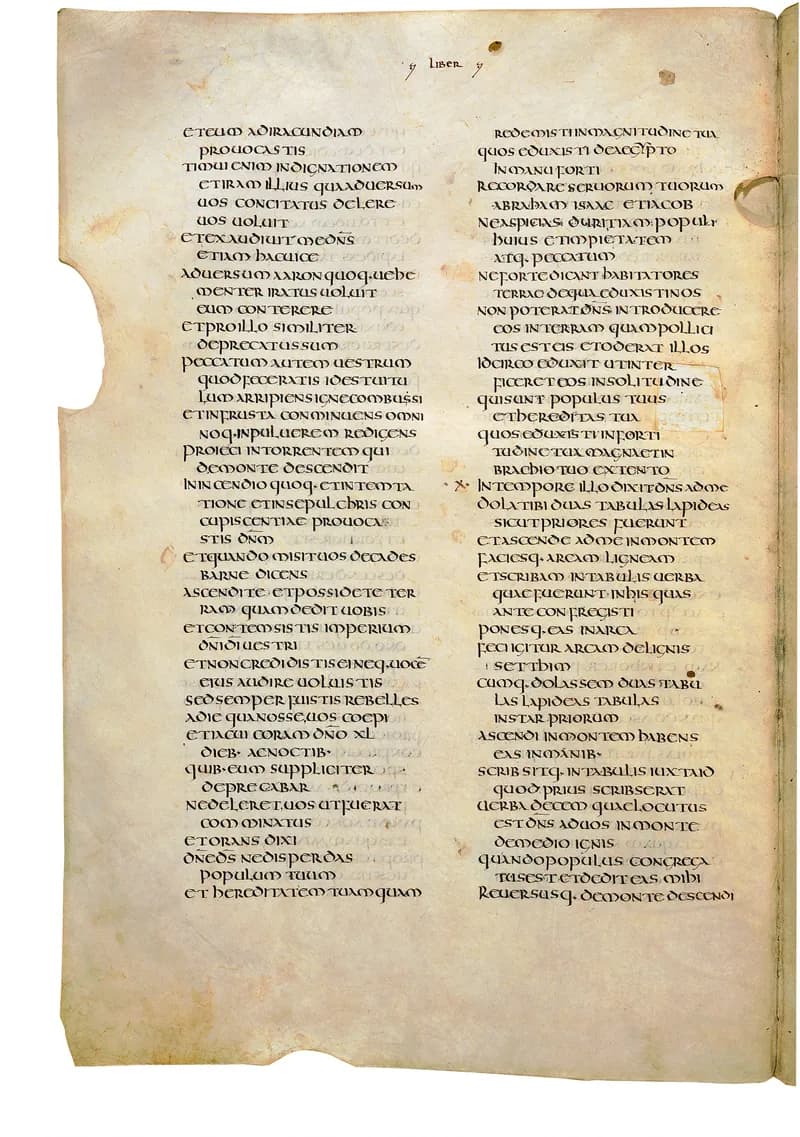 LIBER
ET EUM AD IRACUNDIAM
PROUOCASTIS
TIMUI ENIM INDIGNATIONEM
ET IRAM ILLIUS QUA ADUERSUM
UOS CONCITATUS DELERE
UOS UOLUIT
ET EXAUDIUIT ME DN̄S
ETIAM HAC UICE
ADUERSUM AARON QUOQ· UEHE
MENTER IRATUS UOLUIT
EUM CONTERERE
ET PRO ILLO SIMILITER
DEPRECATUS SUM
PECCATUM AUTEM UESTRUM
QUOD FECERATIS ID EST UITU
LUM ARRIPIENS IGNE COMBUSSI
ET IN FRUSTA CONMINUENS OMNI
NOQ· IN PULUEREM REDIGENS
PROIECI IN TORRENTEM QUI
DE MONTE DESCENDIT
IN INCENDIO QUOQ· ET IN TEMTA
TIONE ET IN SEPULCHRIS CON
CUPISCENTIAE PROUOCA
STIS DN̄M
ET QUANDO MISIT UOS DE CADES
BARNE DICENS
ASCENDITE ET POSSIDETE TER
RAM QUAM DEDIT UOBIS
ET CONTEMSISTIS IMPERIUM
DN̄I DĪ UESTRI
ET NON CREDIDISTIS EI NEQ· UOCĒ
EIUS AUDIRE UOLUISTIS
SED SEMPER FUISTIS REBELLES
A DIE QUA NOSSE UOS COEPI
ET IACUI CORAM DN̄O XL
DIEB· AC NOCTIB·
QUIB· EUM SUPPLICITER
DEPRECABAR
NE DELERET UOS UT FUERAT
COMMINATUS
ET ORANS DIXI
DN̄E DS̄ NE DISPERDAS
POPULUM TUUM
ET HEREDITATEM TUAM QUAM
REDEMISTI IN MAGNITUDINE TUA
QUOS EDUXISTI DE AEGYPTO
IN MANU FORTI
RECORDARE SERUORUM TUORUM
ABRAHAM ISAAC ET IACOB
NE ASPICIAS DURITIAM POPULI
HUIUS ET IMPIETATEM
ATQ· PECCATUM
NE FORTE DICANT HABITATORES
TERRAE DE QUA EDUXISTI NOS
NON POTERAT DN̄S INTRODUCERE
EOS IN TERRAM QUAM POLLICI
TUS EST EIS ET ODERAT ILLOS
IDCIRCO EDUXIT UT INTER
FICERET EOS IN SOLITUDINE
QUI SUNT POPULUS TUUS
ET HEREDITAS TUA
QUOS EDUXISTI IN FORTI
TUDINE TUA MAGNA ET IN
BRACHIO TUO EXTENTO
X· IN TEMPORE ILLO DIXIT DN̄S AD ME
DOLA TIBI DUAS TABULAS LAPIDEAS
SICUT PRIORES FUERUNT
ET ASCENDE AD ME IN MONTEM
FACIESQ· ARCAM LIGNEAM
ET SCRIBAM IN TABULIS UERBA
QUAE FUERUNT IN HIS QUAS
ANTE CONFREGISTI
PONESQ· EAS IN ARCA
FECI IGITUR ARCAM DE LIGNIS
SETTHIM
CUMQ· DOLASSEM DUAS TABU
LAS LAPIDEAS TABULAS
INSTAR PRIORUM
ASCENDI IN MONTEM HABENS
EAS IN MANIB·
SCRIBSITQ· IN TABULIS IUXTA ID
QUOD PRIUS SCRIBSERAT
UERBA DECEM QUAE LOCUTUS
EST DN̄S AD UOS IN MONTE
DE MEDIO IGNIS
QUANDO POPULUS CONGREGA
TUS EST ET DEDIT EAS MIHI
REUERSUSQ· DE MONTE DESCENDI